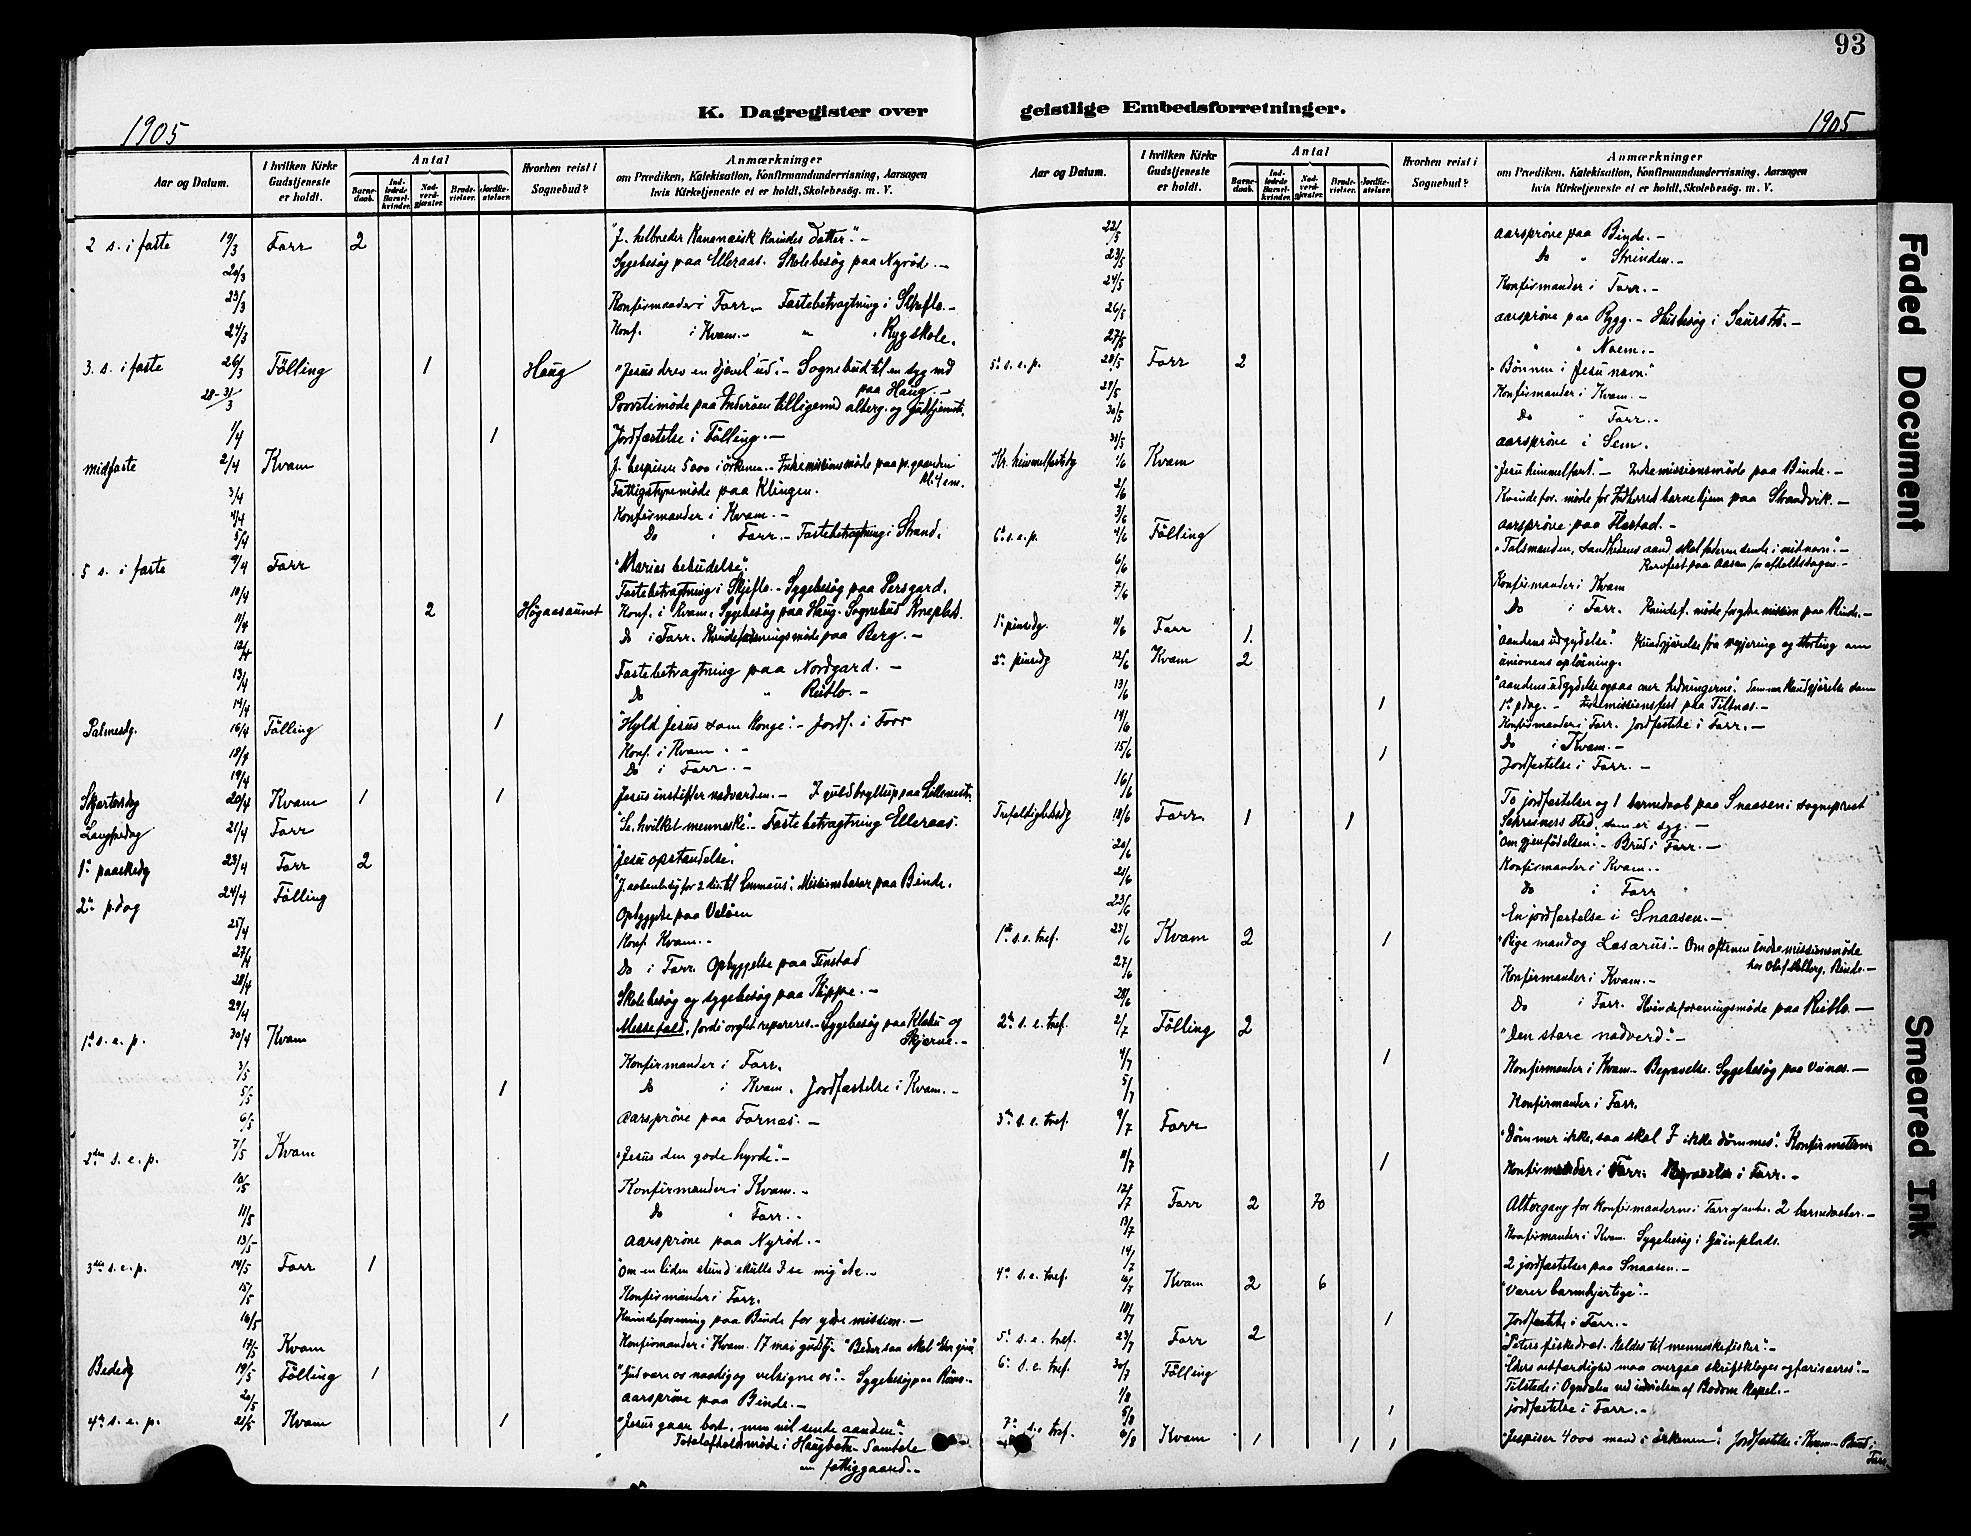 93
K. Dagregister over geistlige Embedsforretninger.
1905
1905
Aar og Datum.
I hvilken Kirke Gudstjeneste er holdt.
Antal
Barnedaab.
Indledede Barselkvinder.
Nadverdgjæster.
Brudevielser.
Jordfæstelser.
Hvorhen reist i Sognebud?
Anmærkninger
om Prædiken, Katekisation, Konfirmandundervisning, Aarsagen
hvis Kirketjeneste ei er holdt, Skolebesög. m. V.
2 s. i faste 19/3 Forr 2 "J. helbreder Kananæisk kvindes datter". -
20/3 Sygebesøg paa Elleraas. Skolebesøg paa Nyrød. -
23/3 Konfirmander i Forr. - Fastebetragtning i Skjefte. -
24/3 Konf. i Kvam. - " Rygskole.
3. s. i faste 26/3 Følling 1 Haug "Jesus drev en djævel ud". - Sognebud til en syg md
paa Haug -
28-31/3 Provstimøde paa Inderøen tilligemed alterg. og gudstjeneste.
1/4 1 Jordfæstelse i Følling. -
midfaste 2/4 Kvam J. bespiser 5000 i ørkenen. - Indremissionsmøde paa pr.gaarden
kl. 4 em.
3/4 Fattigstyremøde paa Klingen.
4/4 Konfirmander i Kvam. -
5/4 Do " Forr. - Fastebetragtning i Strand.
5 s. i faste 9/4 Forr "Marias bebudelse".
10/4 Fastebetragtning i Skjefte. - Sygebesøg paa Persgard.
11/4 2 Høgaasaunet Konf. i Kvam. Sygebesøg paa Haug. Sognebud Kneplet.
12/4 Do i Forr. Kvindeforeningsmøde paa Berg. -
13/4 Fastebetragtning paa Nordgard. -
14/4 Do " Reitlo. -
Palmesdg. 16/4 Følling 1 "Hyld Jesus som Konge". - Jordf. i Forr
18/4 Konf. i Kvam
19/4 Do i Forr. -
Skjærtorsdg 20/4 Kvam 1 1 Jesus instifter nadverden. -
Langfredag 21/4 Forr "Se, hvilket menneske". - Fastebetragtning Elleraas.
1ste paaskedg 23/4 Forr 2 "Jesu opstandelse".
2den p.dag 24/4 Følling Missionsbasar paa Binde.
25/4 Opbyggelse paa Veløen
27/4 Konf. Kvam. -
28/4 Do i Forr. Opbyggelse paa Finstad
29/4 Skolebesøg og sygebesøg paa Kippe. -
1ste s. e. p. 30/4 Kvam Messefald, fordi orglet repareres. - Sygebesøg paa Klæbu og
Skjerve. -
3/5 Konfirmander i Forr.
5/5 1 Do i Kvam. Jordfæstelse i Kvam. -
6/5 Aarsprøve paa Fornes. -
2den s. e. p. 7/5 Kvam "Jesus den gode hyrde". -
10/5 Konfirmander i Kvam. -
11/5 Do " Forr. -
13/5 Aarsprøve paa Nyrød. -
3die s. e. p. 14/5 Forr 1 "Om en liden stund skulle I se mig" etc. -
15/5 Konfirmander i Forr.
16/5 Kvindeforening paa Binde for ydre mission. -
17/5 Kvam Konfirmander i Kvam. 17 mai gudstj.
Bededg 19/5 Følling 1 "Gud være os naadig og velsigne os". - Sygebesøg paa
20/5 Aarsprøve paa Binde. -
4de s. e. p. 21/5 Kvam 1 "Jesus gaar bort, men vil sende aanden".
Totalafholdsmøde i Samtale
om fattiggaard. -
Aar og Datum.
I hvilken Kirke Gudstjeneste er holdt.
Antal
Barnedaab.
Indledede Barselkvinder.
Nadverdgjæster.
Brudevielser.
Jordfæstelser.
Hvorhen reist i Sognebud?
Anmærkninger
om Prædiken, Katekisation, Konfirmandundervisning, Aarsagen
hvis Kirketjeneste ei er holdt, Skolebesög. m. V.
22/5 Aarsprøve paa Binde. -
23/5 Do " Strinden. -
24/5 Konfirmander i Forr. -
26/5 Aarsprøve paa Rygg. - Husbesøg i
27/5 " " Naem. -
5te s. e. p. 28/5 Forr 2 "Bønnen i Jesu navn."
29/5 Konfirmander i Kvam. -
30/5 Do " Forr. -
31/5 Aarsprøve i Sem. -
Kr. himmelfartsdg 1/6 Kvam "Jesu himmelfart". - Indremissionsmøde paa Binde. -
2/6 Kvindefor. møde for Indherred barnehjem paa Strandvik. -
3/6 Aarsprøve paa Flostad. -
6te s. e. p. 4/6 Følling "Talsmanden, sandhedens aand, skal faderen sende i mit navn". -
paa Aasen
6/6 Konfirmander i Kvam
7/6 Do i Forr. Kvindef. møde for ydre mission paa Binde. -
1ste pinsedg. 11/6 Forr 1. "Aandens udgydelse". Kundgjørelse fra regjering og storting om
unionens opløsning.
2den pinsedg 12/6 Kvam 2 "Aandens udgydelse ogsaa over hedningerne". Samme kundgjørelse som
1ste p.dag. - Indremissionsfest paa Tiltnes. -
13/6 1 Konfirmander i Forr. Jordfæstelse i Forr. -
14/6 Do i Kvam. -
15/6 1 Jordfæstelse i Forr. -
16/6 To jordfæstelser og 1 barnedaab paa Snaasen i sogneprest
Schreiners sted, som er syg. -
Trefoldighedsdg 18/6 Forr 1 1 "Om gjenfødelsen". - Brud i Forr. -
20/6 Konfirmander i Kvam. -
21/6 Do i Forr
23/6 En jordfæstelse i Snaasen. -
1ste s. e. tref. 25/6 Kvam 2 1 "Rige mand og Lasarus". - Om aftenen Indremissionsmøde
hos Olaf Solberg, Binde. -
27/6 Konfirmander i Kvam. -
28/6 Do i Forr. Kvindeforeningsmøde paa Reitlo. -
2den s. e. tref. 2/7 Følling 2 "Den store nadverd". -
4/7 1 Konfirmander i Kvam. Begravelse. Sygebesøg paa
5/7 Konfirmander i Forr.
3die s. e. tref. 9/7 Forr "Dømmer ikke, saa skal I ikke dømmes". Konfirmation.
11/7 1 Konfirmander i Forr. Begravelse i Forr. -
12/7 Forr 2 70 Altergang for konfirmanderne i Forr 2 barnedaaber. -
13/7 Konfirmander i Kvam. Sygebesøg i
14/7 2 jordfæstelser paa Snaasen. -
4de s. e. tref. 16/7 Kvam 2 6 "Værer barmhjertige". -
18/7 1 Jordfæstelse i Forr. -
5te s. e. tref. 23/7 Forr 2 "Peters fiskedræt. Kaldes til menneskefisker". -
6te s. e. tref. 30/7 Følling "Eders retfærdighed maa overgaa skriftkloges og farisæeres". -
1/8 Tilstede i Ogndalen ved indvielsen af Bodom kapel. -
5/8 1 Jordfæstelse i Forr. -
7de s. e. tref. 6/8 Kvam 1 1 1 "J. bespiser 4000 mand i ørkenen". Jordfæstelse i Kvam - Brud i
Forr.
Faded Document
Smeared Ink